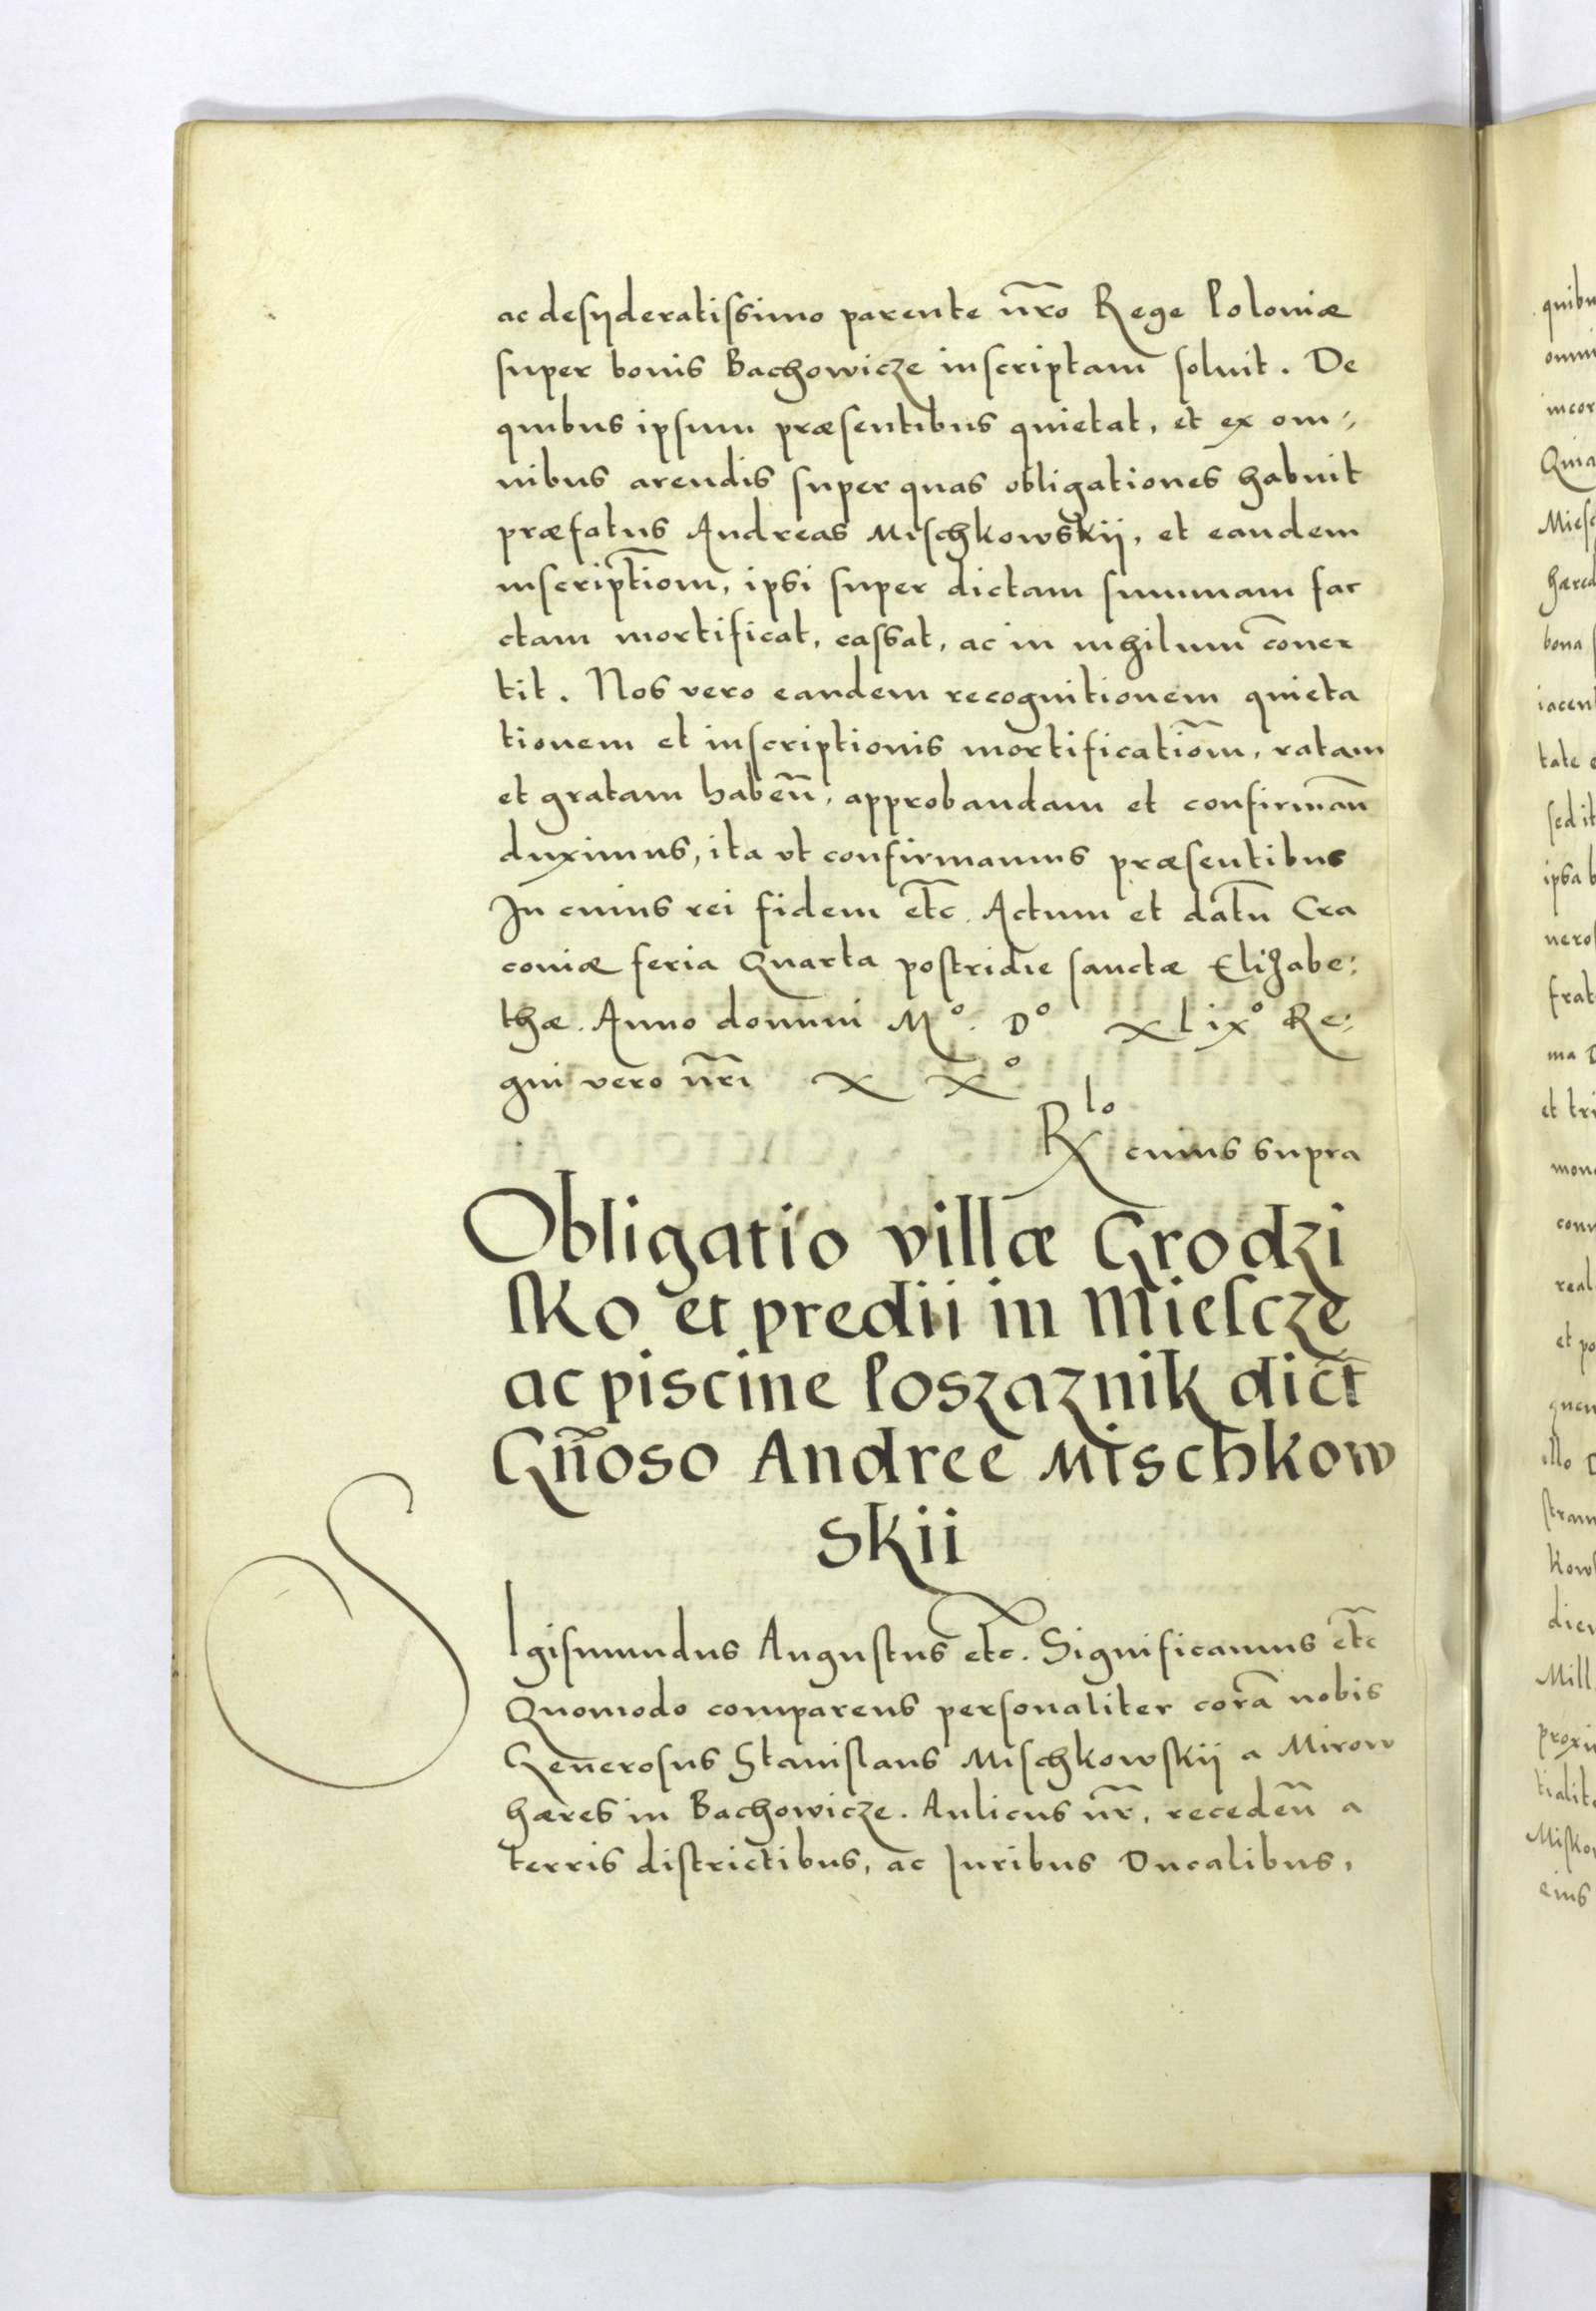 ac desyderatissimo parente nr̃o Rege Poloniæ
super bonis Bachowicze inscriptam soluit. De
quibus ipsum præsentibus quietat, et ex om⸗
nibus arendis super quas obligationes habuit
præfatus Andreas Mischkowskij, et eandem
inscriptio͂m, ipsi super dictam summam fac
ctam mortificat, cassat, ac in nihilum co͂uer
tit. Nos vero eandem recognitionem quieta
tionem et inscriptionis mortificatio͂m, ratam
et gratam habeñ, approbandam et confirmañ
duximus, ita vt confirmamus præsentibus
In cuius rei fidem et͂c. Actum et datũ Cra
couiæ feria Quarta postridie sanctæ Elizabe:
thæ. Anno domini Mº. Dº xlixº Re:
gni vero nr̃i x xº
Rlo cuius supra
Obligatio villæ Grodzi
sko et predii in Miescze
ac piscine Poszaznik dict͂
Gn͂oso Andree Mischkow
skii
SIgismundus Augustus etc. Significamus et͂c
Quomodo comparens personaliter corã nobis
Generosus Stanislaus Mischkowskij a Mirow
hæres in Bachowicze. Aulicus nr̃, recedeñ a
terris districtibus, ac Iuribus Ducalibus,
quibu
omni
incor
Quia
Miesc
hæred
bona
iacent
tate e
sed it
ipsa b
neros
frat
ma D
et tri
mon
conu
real
et po
quen
illo D
stram
kows
dien
Mill
proxi
tialit
Misko
eius